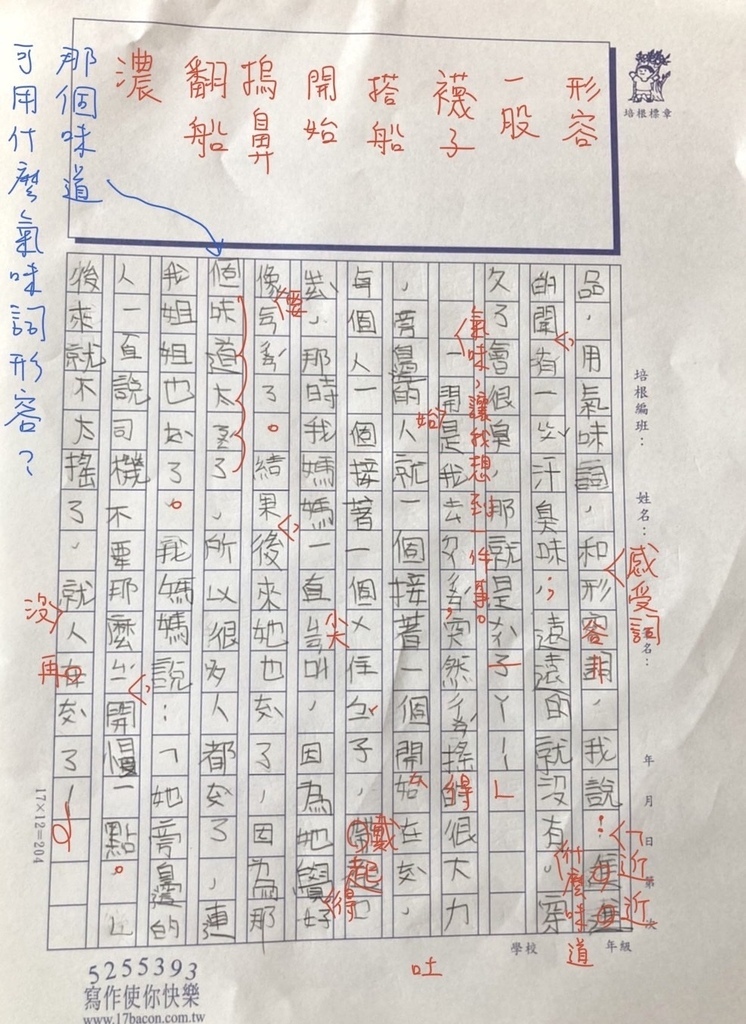 形容
一股
襪子
搭船
開始
摀鼻
翻船
濃
那個味道
可用什麼氣味詞形容?
培根標章
培根編班:
姓名:
年 月 日
第 次
學校
年級
品,用氣味詞,和形容詞,我說
感受詞
「近近
的聞有一ㄍㄨ汗臭味,遠遠的就沒有。穿
什麼味道
久了會很臭,那就是
氣味,讓我想到一件事。
一開是我去
突然
搖得很大力
始
,旁邊的人就一個接著一個開始在
吐
每個人一個接著一個
住
子
戴起
,那時我媽媽一直
尖
叫,因為她覺得好
像
要
了。結果後來她也
了,因為那
個味道太
了,所以很多人都
了,連
我姐姐也
了。我媽媽說:「她旁邊的
人一直說司機不要那麼
開慢一點。」
後來就不太搖了,就
沒
人
再
了!
17×12=204
5255393
寫作使你快樂
www.17bacon.com.tw